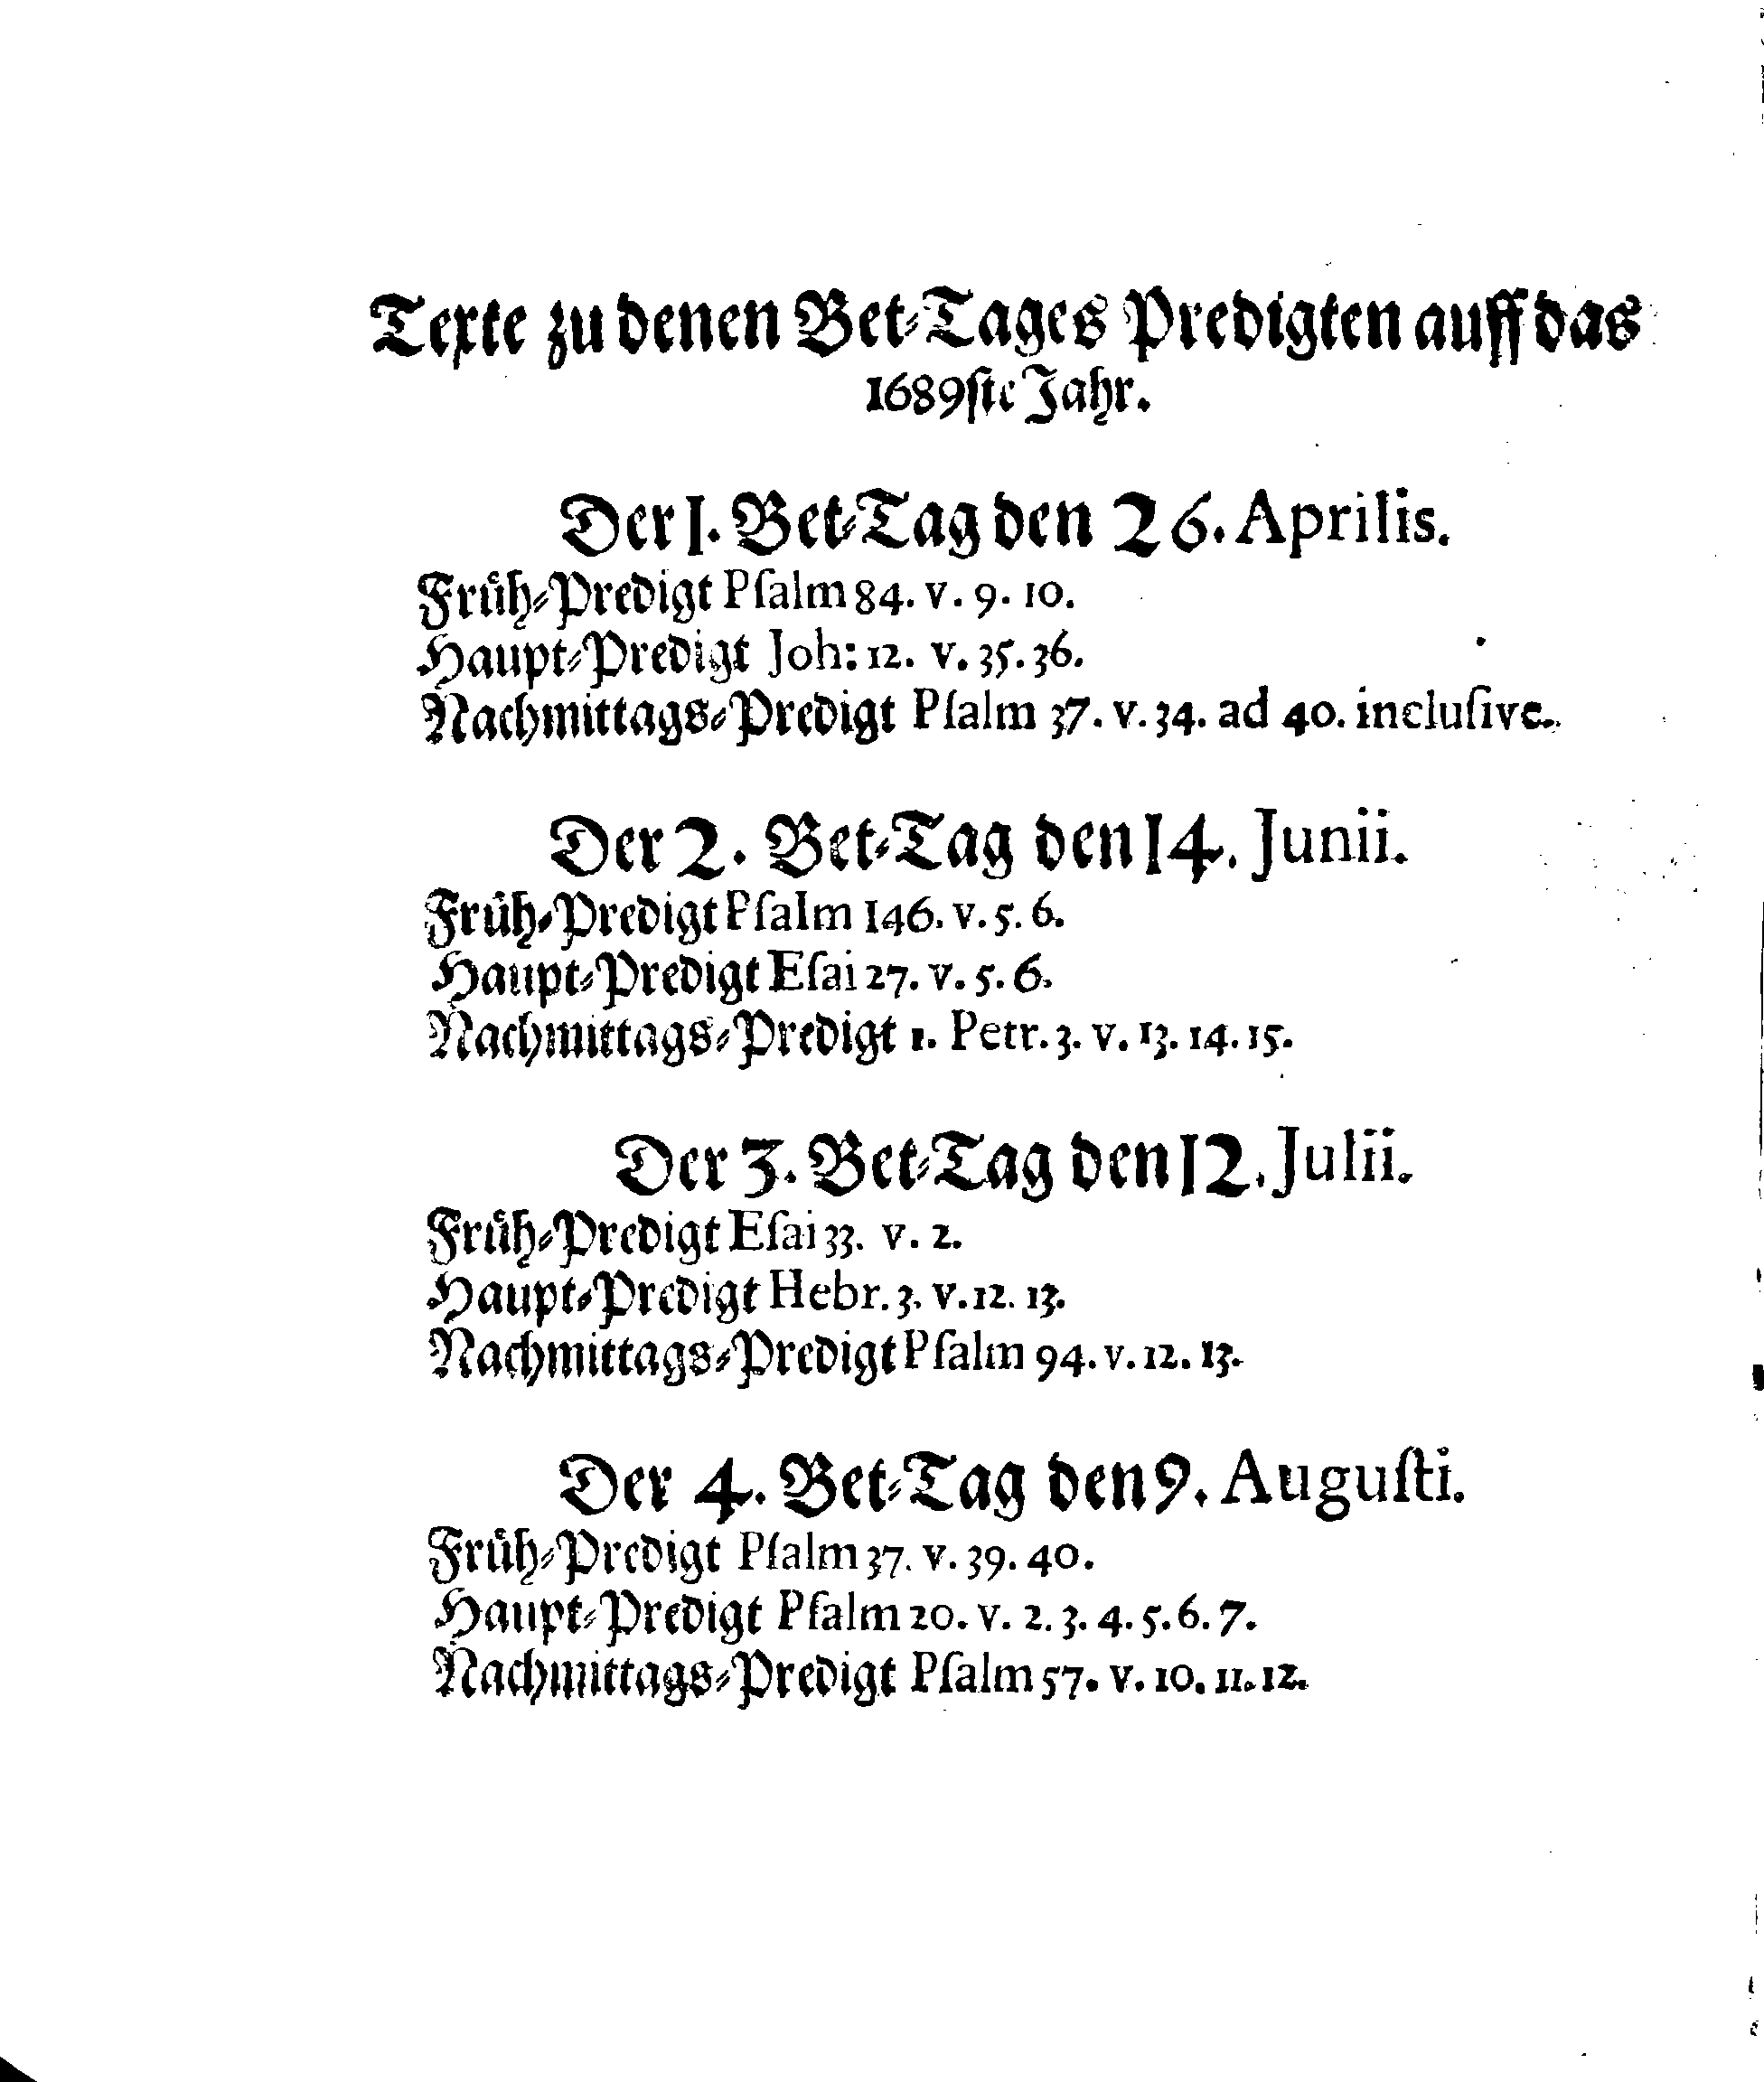 Texte zu denen Bet-Tages Predigten auff das
1689ste Jahr.
Der 1. Bet-Tag den 26. Aprilis.
Früh-Predigt Psalm 84. v. 9. 10.
Haupt-Predigt Joh: 12. v. 35. 36.
Nachmittags-Predigt Psalm 37. v. 34. ad 40. inclusive.
Der 2. Bet-Tag den 14. Junii.
Früh-Predigt Psalm 146. v. 5. 6.
Haupt-Predigt Esai 27. v. 5. 6.
Nachmittags-Predigt 1. Petr. 3. v. 13. 14. 15.
Der 3. Bet-Tag den 12. Julii.
Früh-Predigt Esai 33. v. 2.
Haupt-Predigt Hebr. 3. v. 12. 13.
Nachmittags-Predigt Psalm 94. v. 12. 13.
Der 4. Bet-Tag den 9. Augusti.
Früh-Predigt Psalm 37. v. 39. 40.
Haupt-Predigt Psalm 20. v. 2. 3. 4. 5. 6. 7.
Nachmittags-Predigt Psalm 57. v. 10. 11. 12.